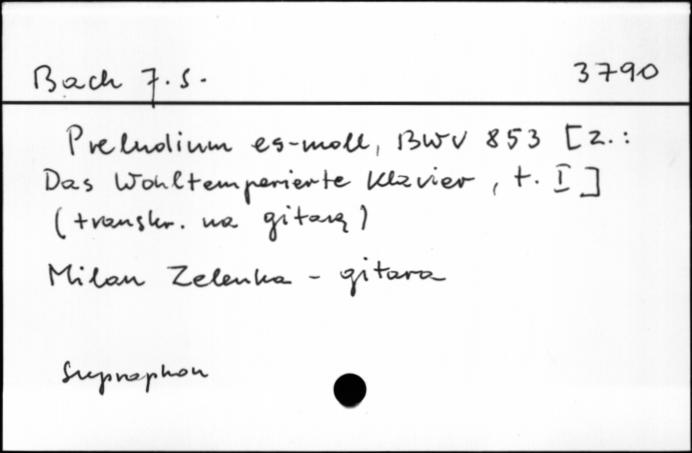 Bach J. S. 3790
Preludium es-moll, BWV 853 [z.:
Das Wohltemperierte Klavier, t. I]
(transkr. na gitarę)
Milan Zelenka - gitara
Supraphon